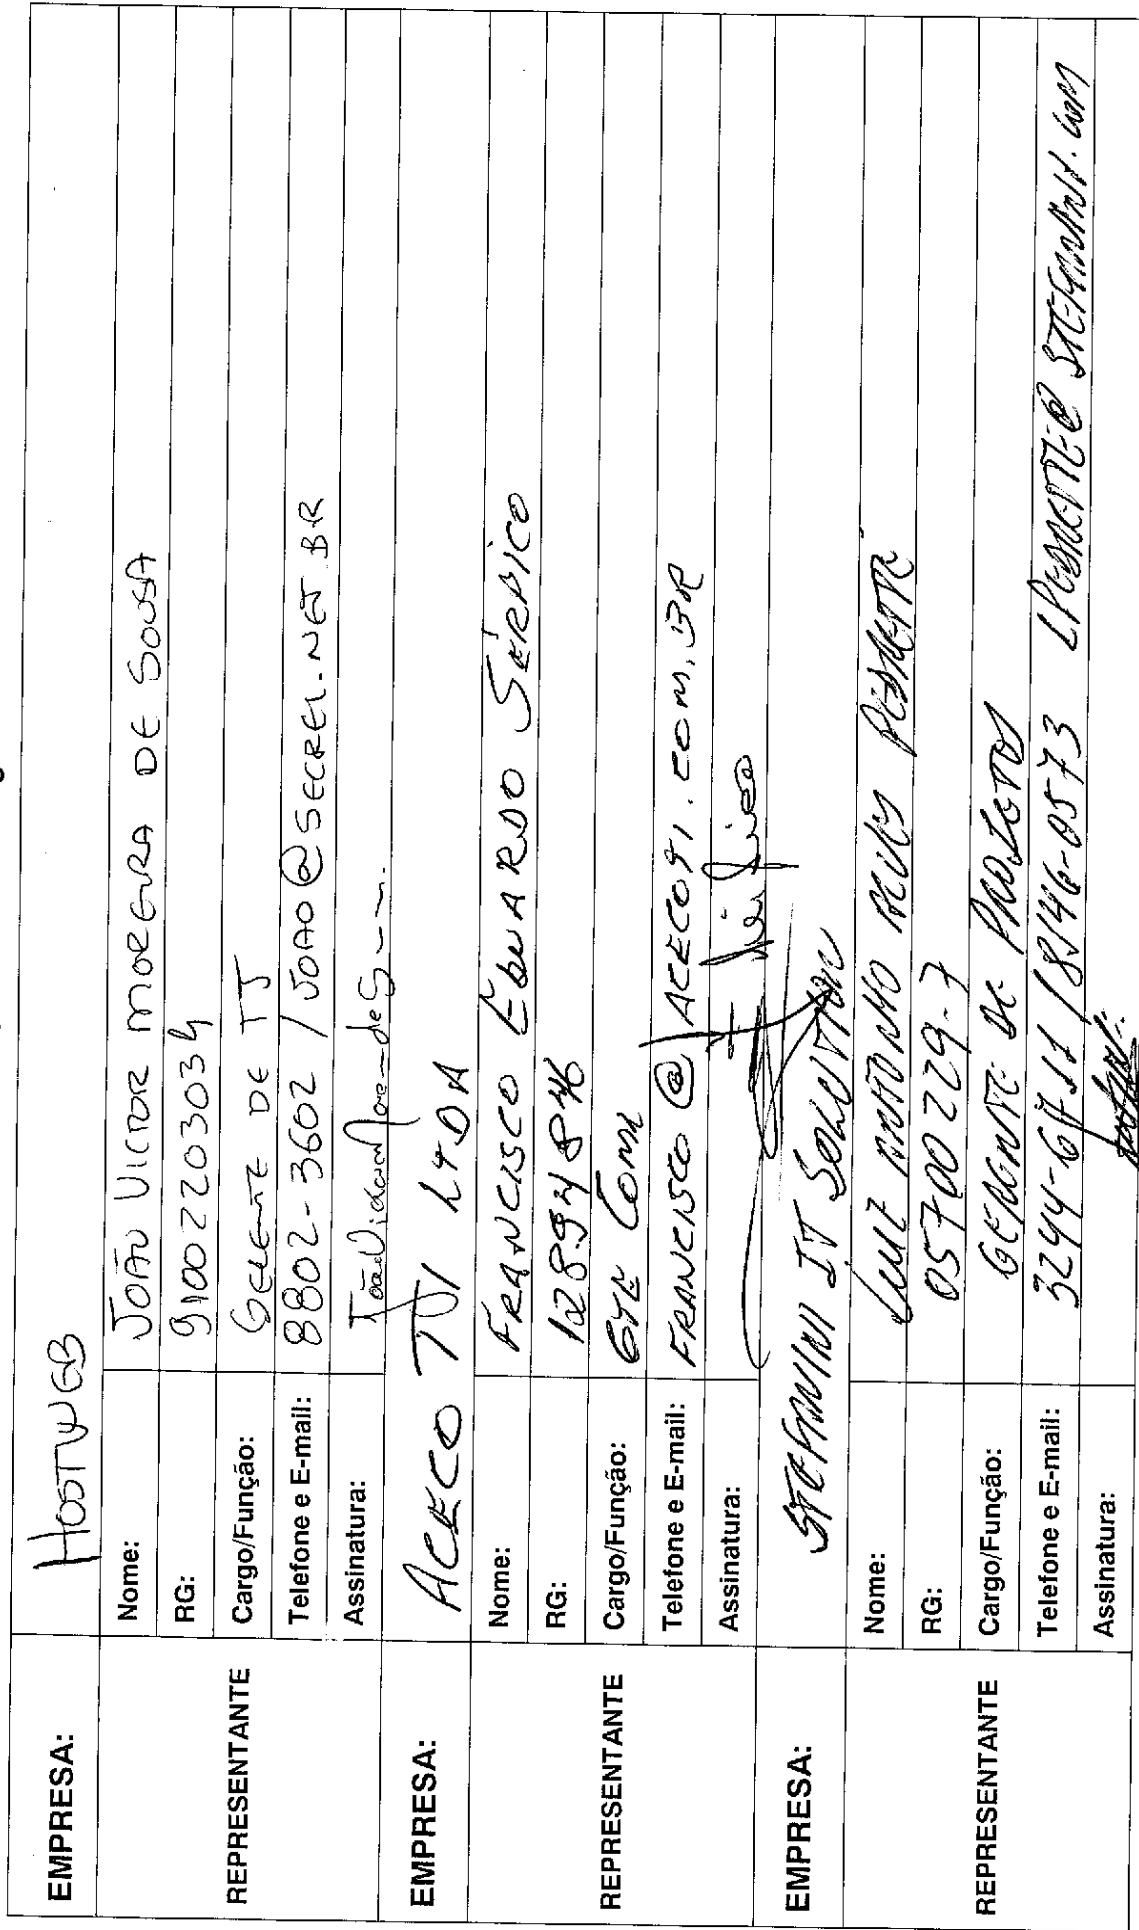 EMPRESA: HOSTWEB
REPRESENTANTE
Nome: JOÃO VICTOR MOREIRA DE SOUSA
RG: 91002203034
Cargo/Função: GERENTE DE TI
Telefone e E-mail: 8802-3602 / JOAO@SECREL.NET.BR
Assinatura: João Victor
EMPRESA: ACECO TI LTDA
REPRESENTANTE
Nome: FRANCISCO EDUARDO SÉRBICO
RG:
Cargo/Função: GTE COML
Telefone e E-mail: FRANCISCO@ACECOTI.COM.BR
Assinatura:
EMPRESA: STEFANINI IT SOLUTION
REPRESENTANTE
Nome: LUIZ ANTONIO ALVES
RG: 05700229-7
Cargo/Função: GERENTE DE PROJETOS
Telefone e E-mail: 3244-6711 / 8146-0573
Assinatura: